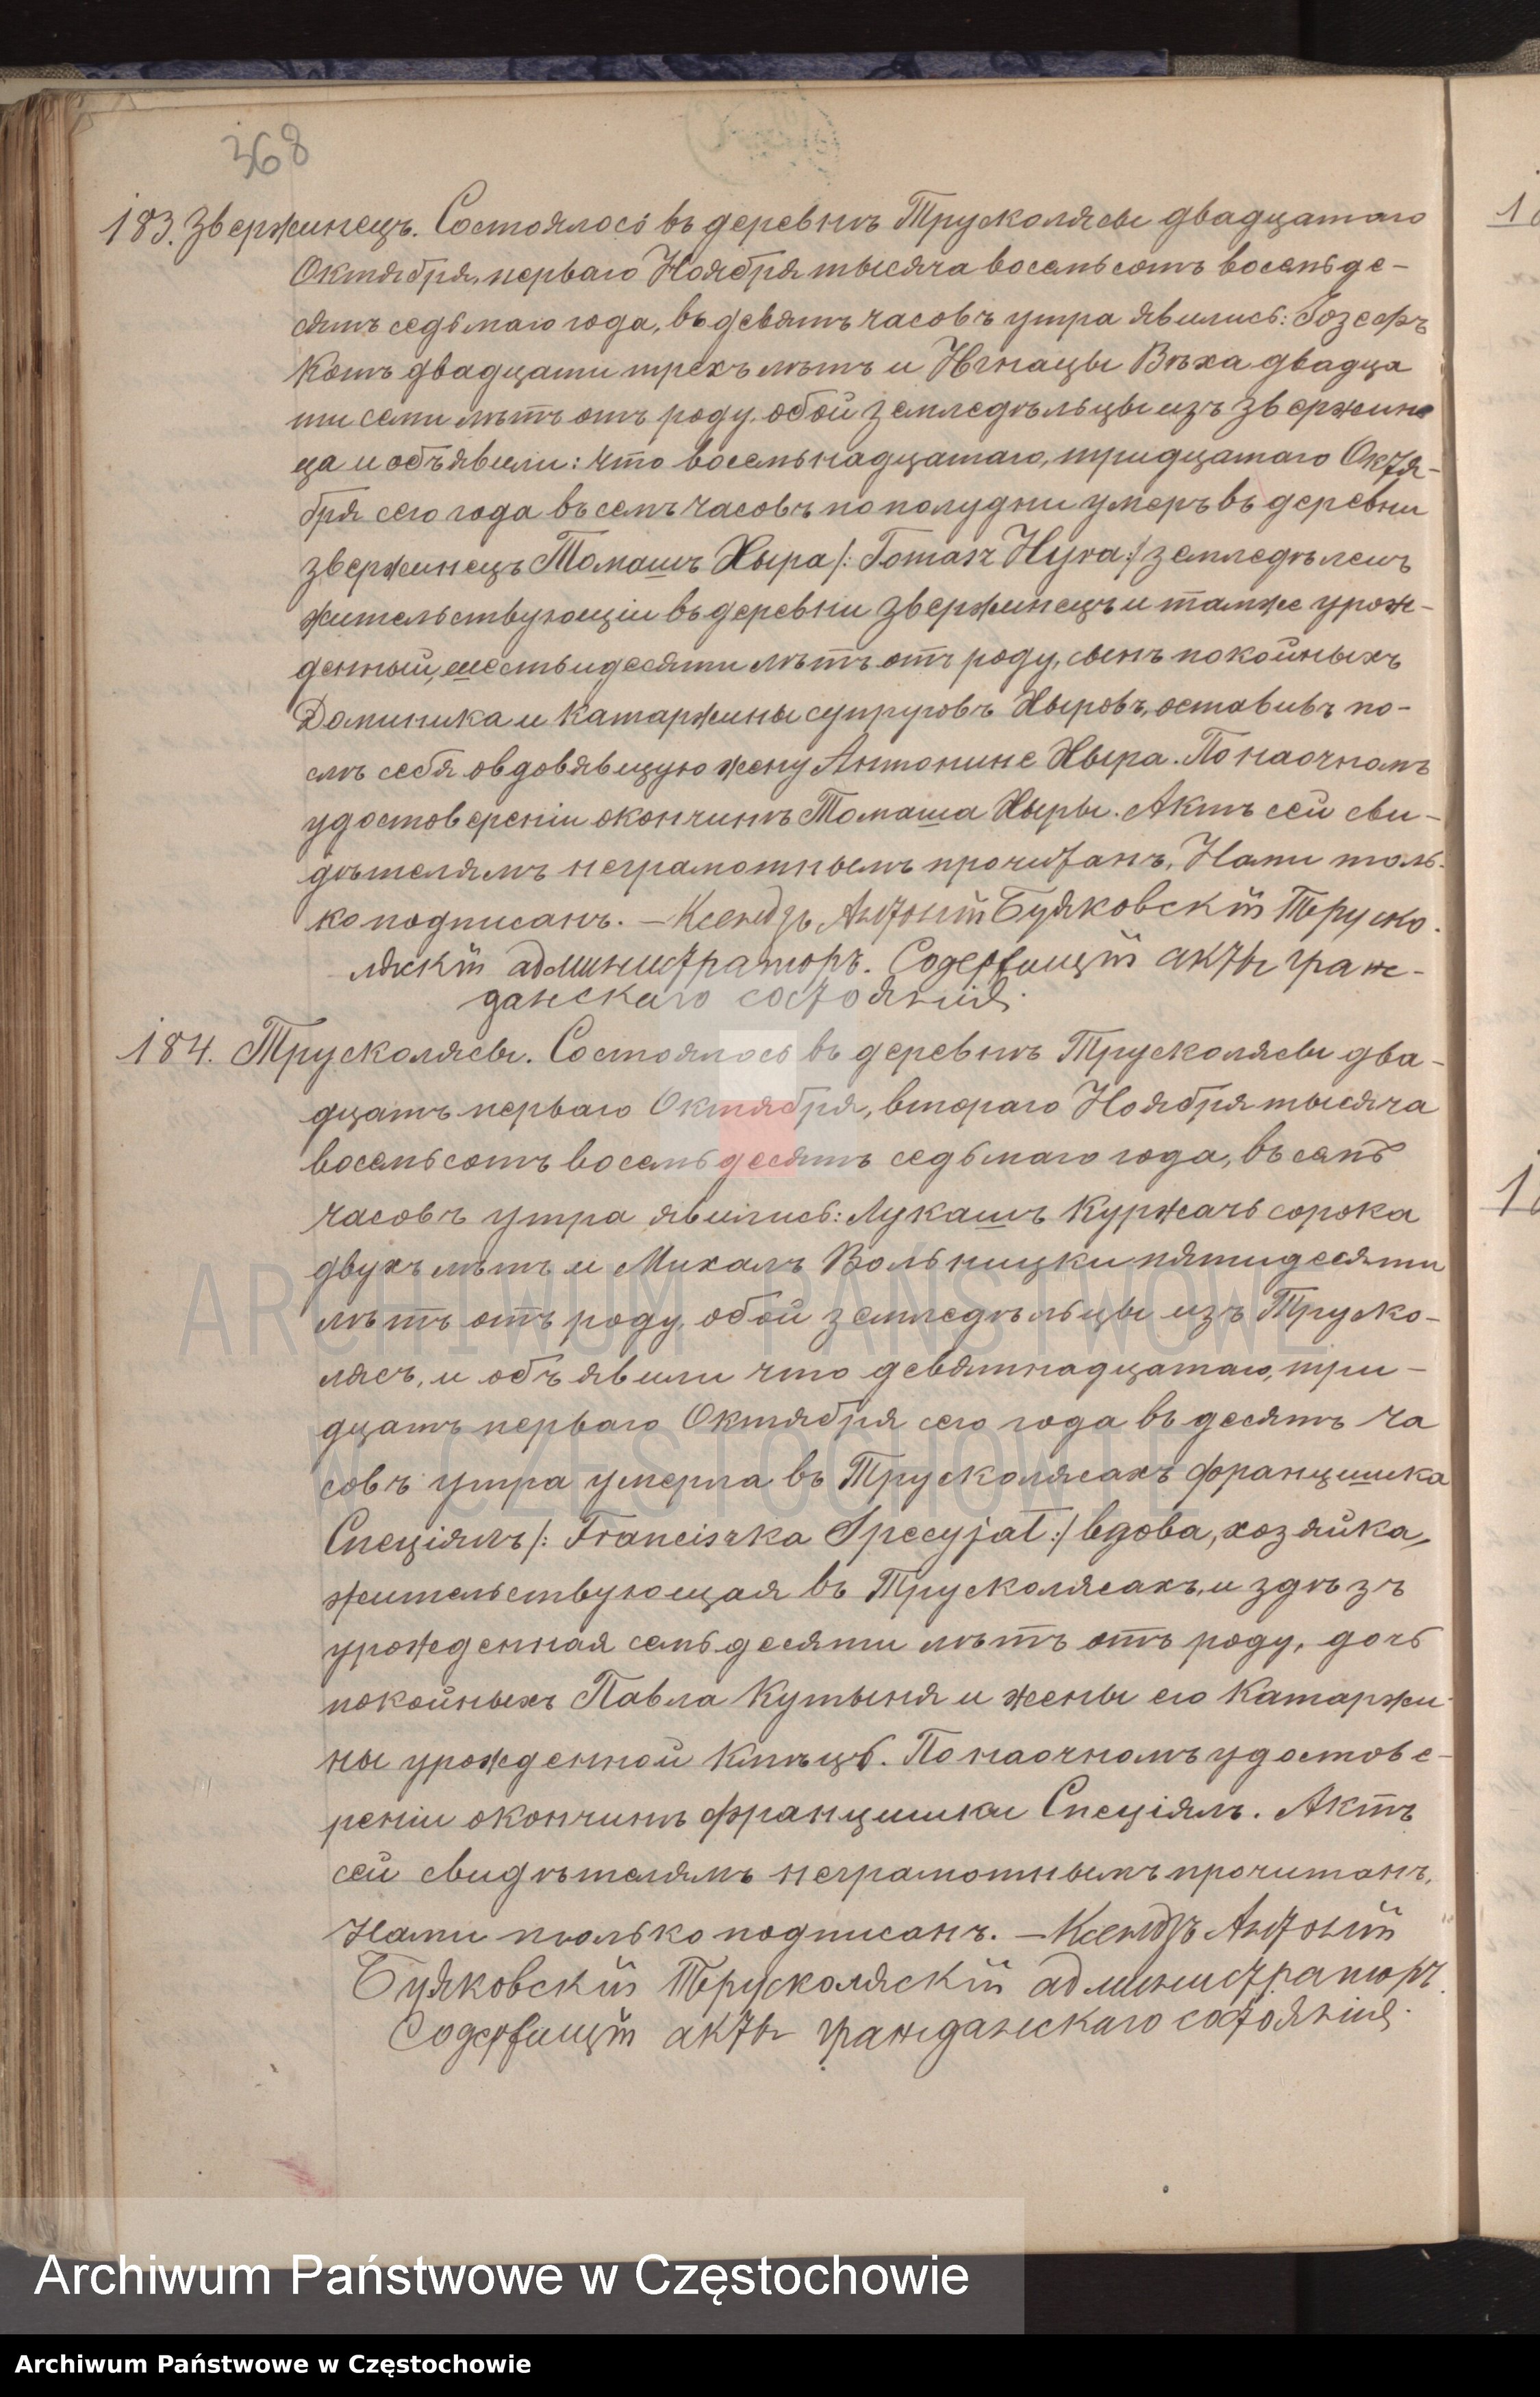 368
183. Звержинецъ. Состоялось въ деревнѣ Трусколясы двадцатаго
Октября, перваго Ноября тысяча восемьсотъ восемьде-
сятъ седьмаго года, въ девять часовъ утра явились: Іозефъ
Котъ двадцати трехъ лѣтъ и Игнацы Вѣха двадца
ти семи лѣтъ отъ роду, обой земледѣльцы изъ Звержин
ца и объявили: что восемьнадцатаго, тридцатаго Октя-
бря сего года въ семь часовъ по полудни умеръ въ деревни
Звержинецъ Томашъ Хыра /: Tomasz Hyra :/ земледѣлецъ
жительствующій въ деревни Звержинецъ и тамже урож-
денный, шестьидесяти лѣтъ отъ роду, сынъ покойныхъ
Доминика и Катаржины супруговъ Хыровъ, оставивъ по-
слѣ себя овдовявшую жену Антонине Хыра. По наочномъ
удостовереніи окончинѣ Томаша Хыры. Актъ сей сви-
дѣтелямъ неграмотнымъ прочитанъ, Нами толь-
ко подписанъ. — Ксендзъ Антоній Буяковскій Труско-
ляскій администраторъ. Содержащій акты граж-
данскаго состоянія.
184. Трусколясы. Состоялось въ деревнѣ Трусколясы два-
дцать перваго Октября, втораго Ноября тысяча
восемьсотъ восемьдесятъ седьмаго года, въ семь
часовъ утра явились: Лукашъ Куржачъ сорока
двухъ лѣтъ и Михалъ Вольницки пятидесяти
лѣтъ отъ роду, обой земледѣльцы изъ Труско-
лясъ, и объявили что девятнадцатаго, три-
дцать перваго Октября сего года въ десять ча
совъ утра умерла въ Трусколясахъ Францишка
Спеціялъ /: Franciszka Specyjał :/ вдова, хозяйка,
жительствующая въ Трусколясахъ, и здѣзъ
урожденная семьдесяти лѣтъ отъ роду, дочь
покойныхъ Павла Кутыня и жены его Катаржи-
ны урожденной Кмѣць. По наочномъ удостове-
реніи окончинѣ Францишки Спеціялъ. Актъ
сей свидѣтелямъ неграмотнымъ прочитанъ,
Нами только подписанъ. — Ксендзъ Антоній
Буяковскій Трусколяскій администраторъ.
Содержащій акты гражданскаго состоянія.
ARCHIWUM PAŃSTWOWE
W CZĘSTOCHOWIE
Archiwum Państwowe w Częstochowie
Archiwum Państwowe w Częstochowie